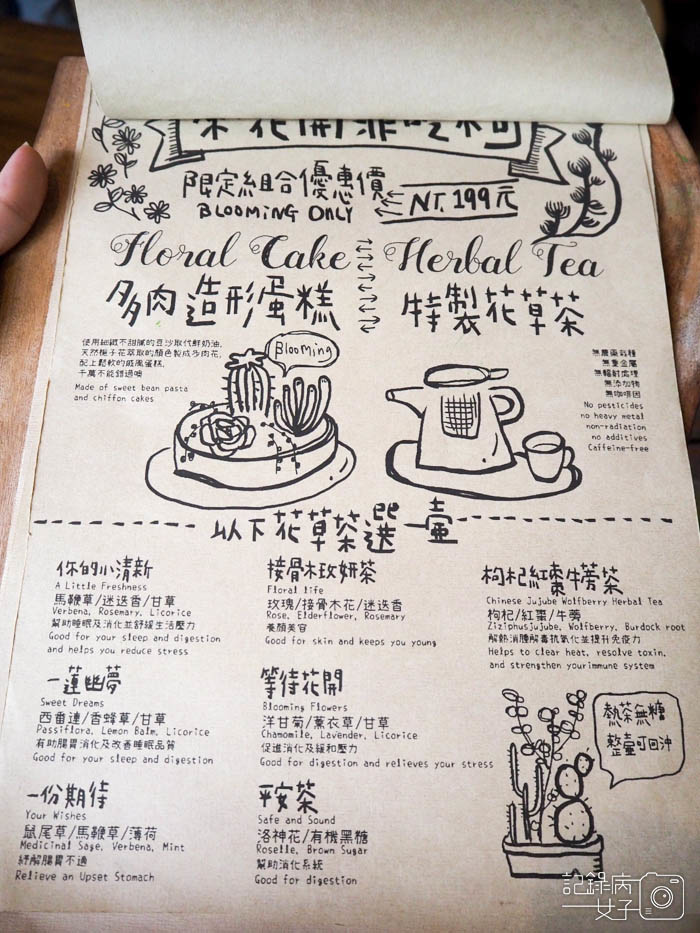 限定組合優惠價
BLOOMING ONLY
NT.199元
Floral Cake
多肉造形蛋糕
Herbal Tea
特製花草茶
使用細緻不甜膩的豆沙取代鮮奶油,
天然梔子花萃取的顏色製成多肉花,
配上鬆軟的戚風蛋糕,
千萬不能錯過唷
Made of sweet bean pasta
and chiffon cakes
Blooming
無農藥栽種
無重金屬
無輻射處理
無添加物
無咖啡因
No pesticides
no heavy metal
non-radiation
no additives
Caffeine-free
以下花草茶選一壺
你的小清新
A Little Freshness
馬鞭草/迷迭香/甘草
Verbena, Rosemary, Licorice
幫助睡眠及消化並舒緩生活壓力
Good for your sleep and digestion
and helps you reduce stress
接骨木玫妍茶
Floral life
玫瑰/接骨木花/迷迭香
Rose, Elderflower, Rosemary
養顏美容
Good for skin and keeps you young
枸杞紅棗牛蒡茶
Chinese Jujube Wolfberry Herbal Tea
枸杞/紅棗/牛蒡
Ziziphusjujube, Wolfberry, Burdock root
解熱消腫解毒抗氧化並提升免疫力
Helps to clear heat, resolve toxin,
and strengthen yourimmune system
一蓮幽夢
Sweet Dreams
西番蓮/香蜂草/甘草
Passiflora, Lemon Balm, Licorice
有助腸胃消化及改善睡眠品質
Good for your sleep and digestion
等待花開
Blooming Flowers
洋甘菊/薰衣草/甘草
Chamomile, Lavender, Licorice
促進消化及緩和壓力
Good for digestion and relieves your stress
一份期待
Your Wishes
鼠尾草/馬鞭草/薄荷
Medicinal Sage, Verbena, Mint
紓解腸胃不適
Relieve an Upset Stomach
平安茶
Safe and Sound
洛神花/有機黑糖
Roselle, Brown Sugar
幫助消化系統
Good for digestion
熱茶無糖
整壺可回沖
記錄病
女子